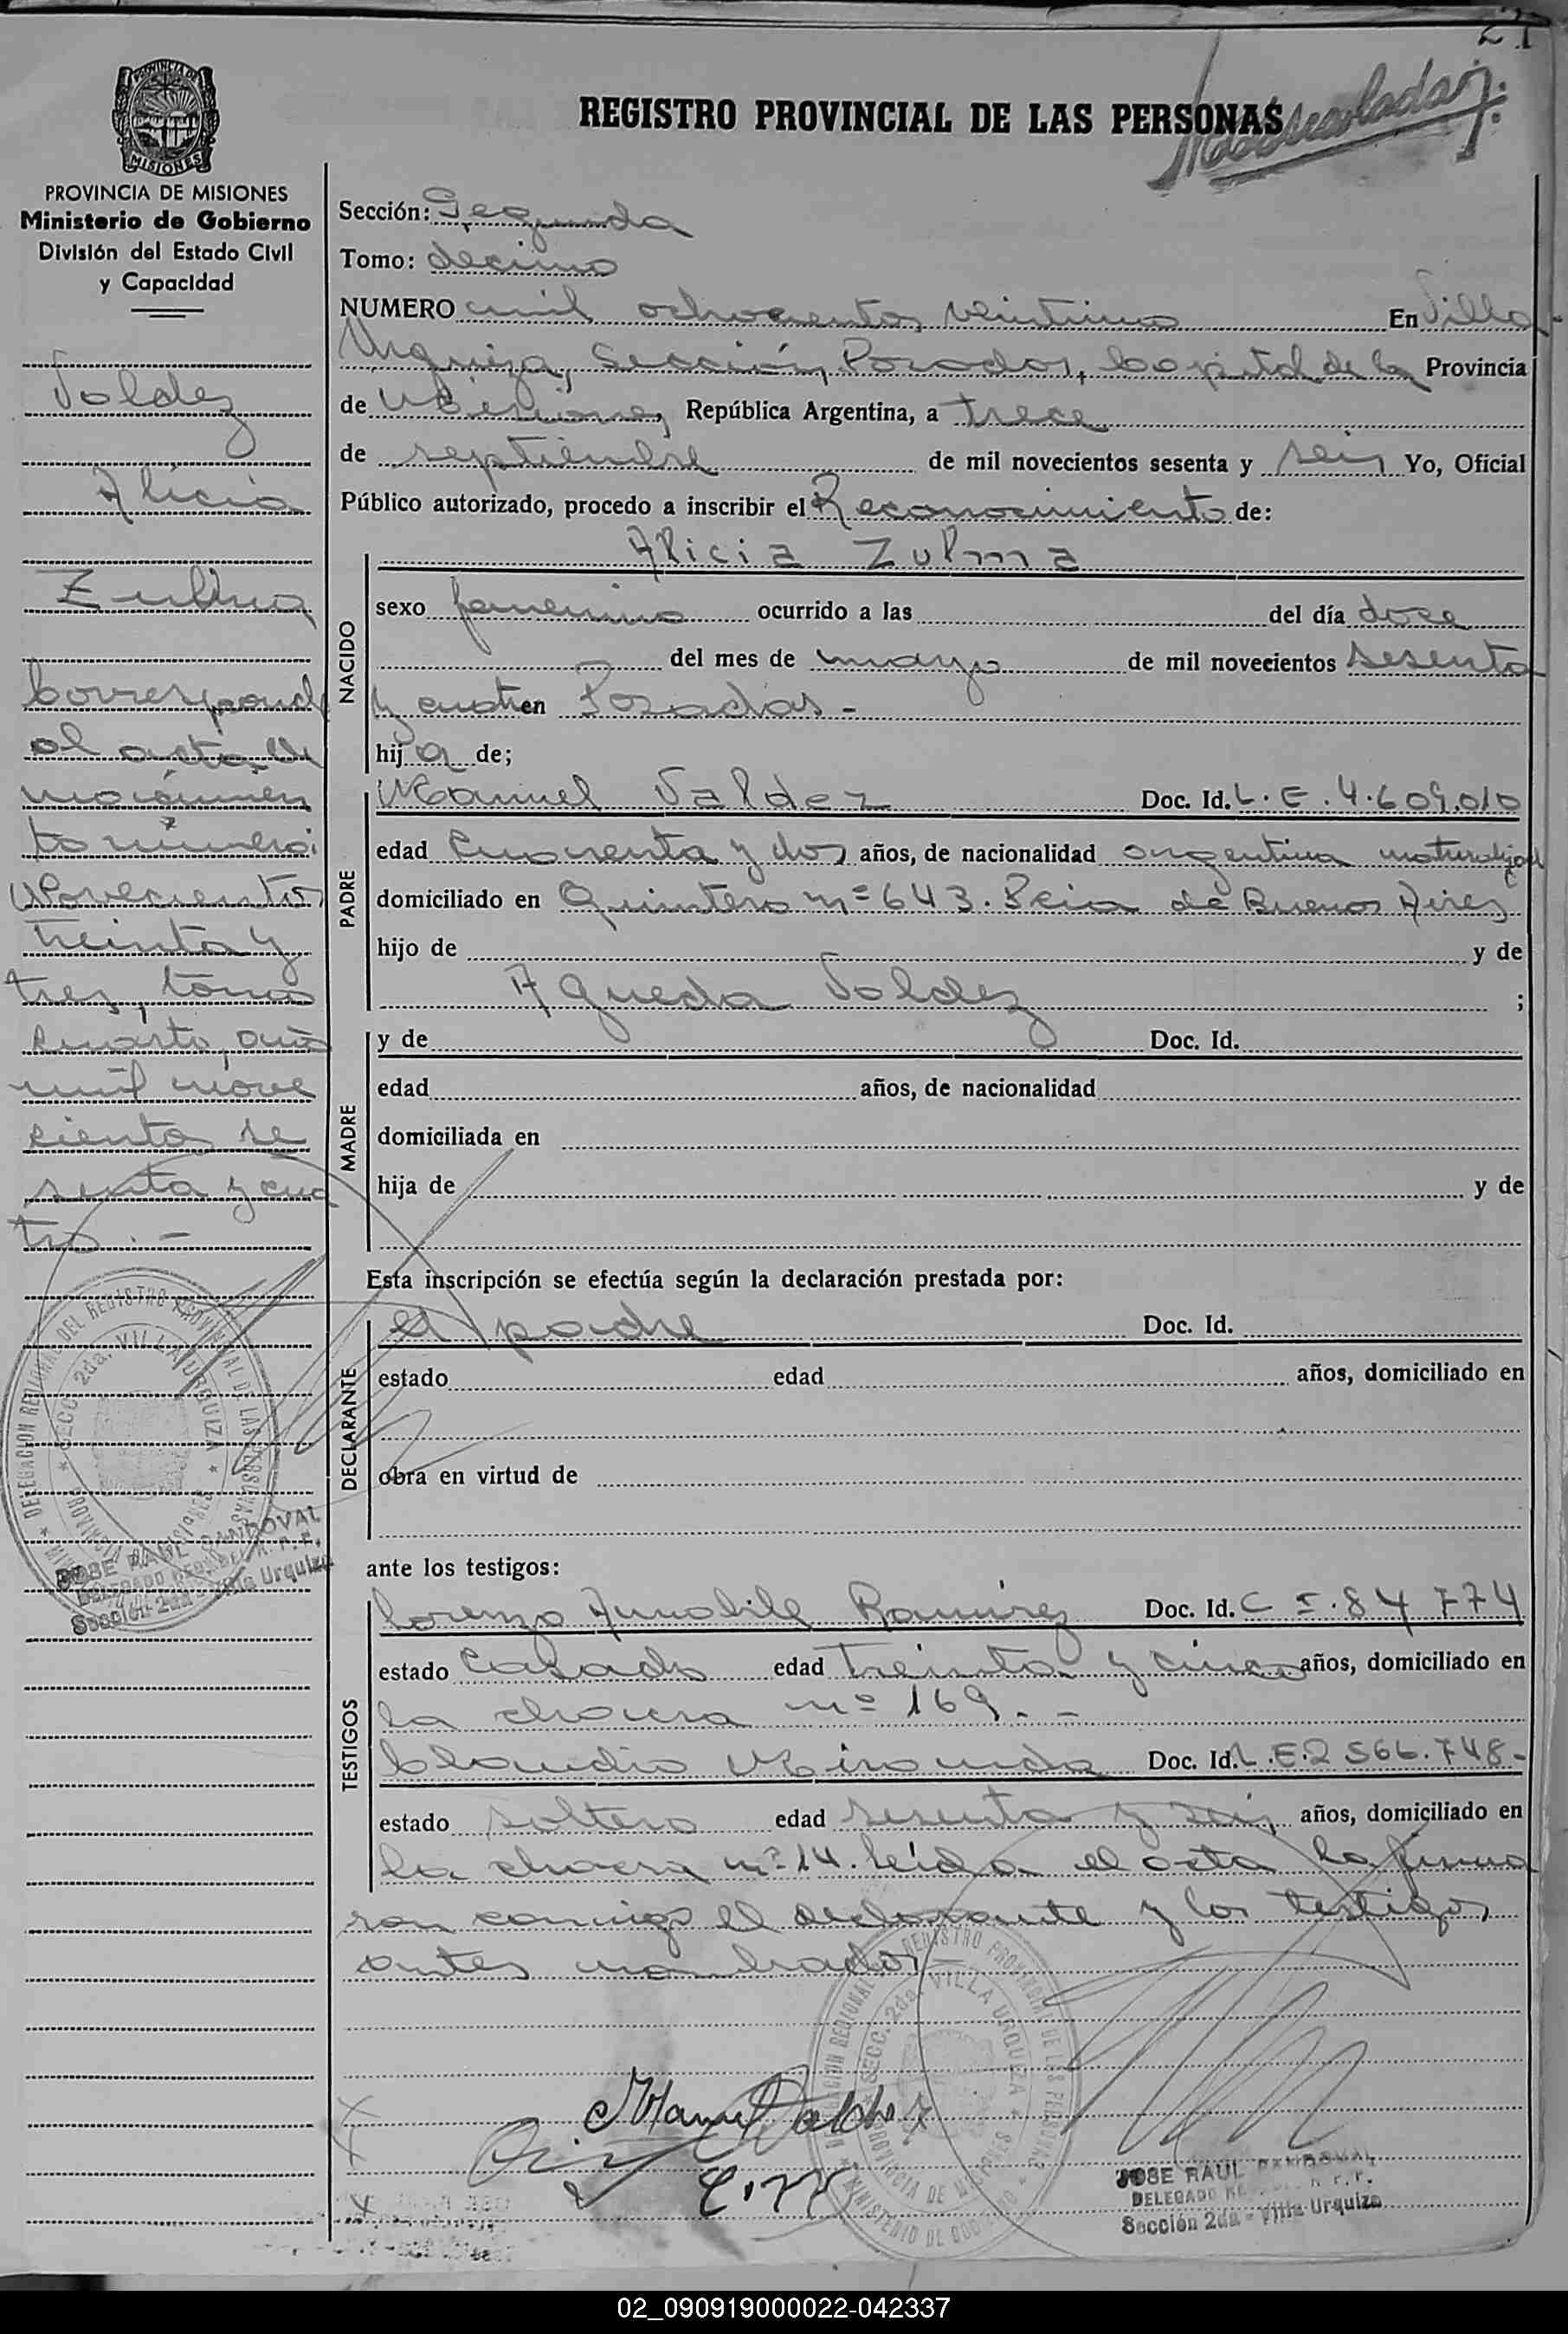 21
REGISTRO PROVINCIAL DE LAS PERSONAS
PROVINCIA DE
MISIONES
PROVINCIA DE MISIONES
Ministerio de Gobierno
División del Estado Civil
y Capacidad
Valdez
Alicia
Zulma
Corresponde
al acta de
nacimien
to número:
Novecientos
treinta y
tres, tomo
cuarto, año
mil nove
cientos se
senta y cua
tro. -
DELEGACION REGIONAL DEL REGISTRO PROVINCIAL DE LAS PERSONAS
SECC. 2da. VILLA URQUIZA
JOSE RAUL SANDOVAL
DELEGADO REG. DEL R. P. P.
Sección 2da - Villa Urquiza
Sección: Segunda
Tomo: décimo
NUMERO mil ochocientos veintiuno En Villa
Urquiza, Sección Posadas, Capital de la Provincia
de Misiones, República Argentina, a trece
de septiembre de mil novecientos sesenta y seis Yo, Oficial
Público autorizado, procedo a inscribir el Reconocimiento de:
Alicia Zulma
NACIDO
sexo femenino ocurrido a las del día doce
del mes de mayo de mil novecientos sesenta
y cuatro en Posadas -
hija de;
PADRE
Manuel Valdez Doc. Id. L. E. 4.609.010
edad Cuarenta y dos años, de nacionalidad argentina
domiciliado en Quintero nº 643. Pcia de Buenos Aires
hijo de y de
Agueda Valdez ;
MADRE
y de Doc. Id.
edad años, de nacionalidad
domiciliada en
hija de y de
Esta inscripción se efectúa según la declaración prestada por:
DECLARANTE
el padre Doc. Id.
estado edad años, domiciliado en
obra en virtud de
ante los testigos:
TESTIGOS
Lorenzo Ramírez Doc. Id. C I. 84 774
estado Casado edad treinta y cinco años, domiciliado en
la chacra nº 169. -
Claudio Miranda Doc. Id. L.E. 2 566.748-
estado soltero edad sesenta y seis años, domiciliado en
la chacra nº 14. leída el acta la firma
ron conmigo el declarante y los testigos
antes nombrados -
Manuel Valdez
REGISTRO PROVINCIAL DE LAS PERSONAS
SECC. 2da. VILLA URQUIZA
PROVINCIA DE MISIONES
MINISTERIO DE GOBIERNO
JOSE RAUL SANDOVAL
DELEGADO
Sección 2da - Villa Urquiza
02_090919000022-042337